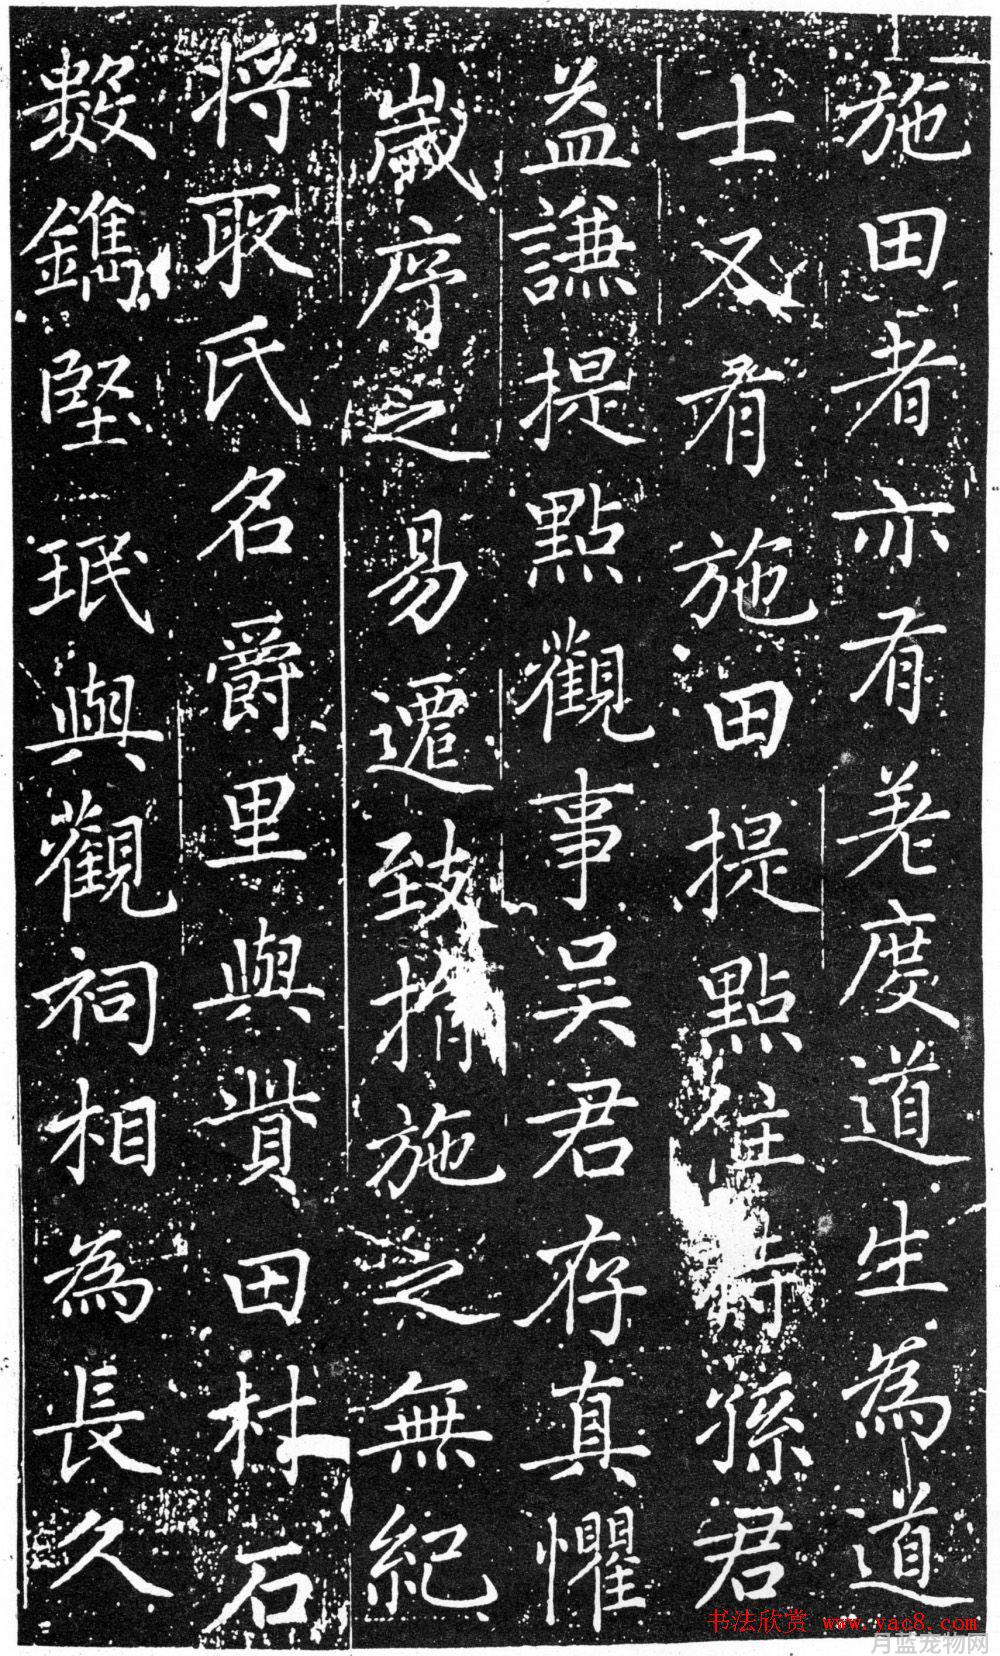 施田者亦有差度道生為道
士又有施田提點住持孫君
益謙提點觀事吳君存真懼
歲序之易遷致捐施之無紀
将取氏名爵里與貲田材石
數鐫堅珉與觀祠相為長久
书法欣赏 www.yac8.com
月蓝宠物网